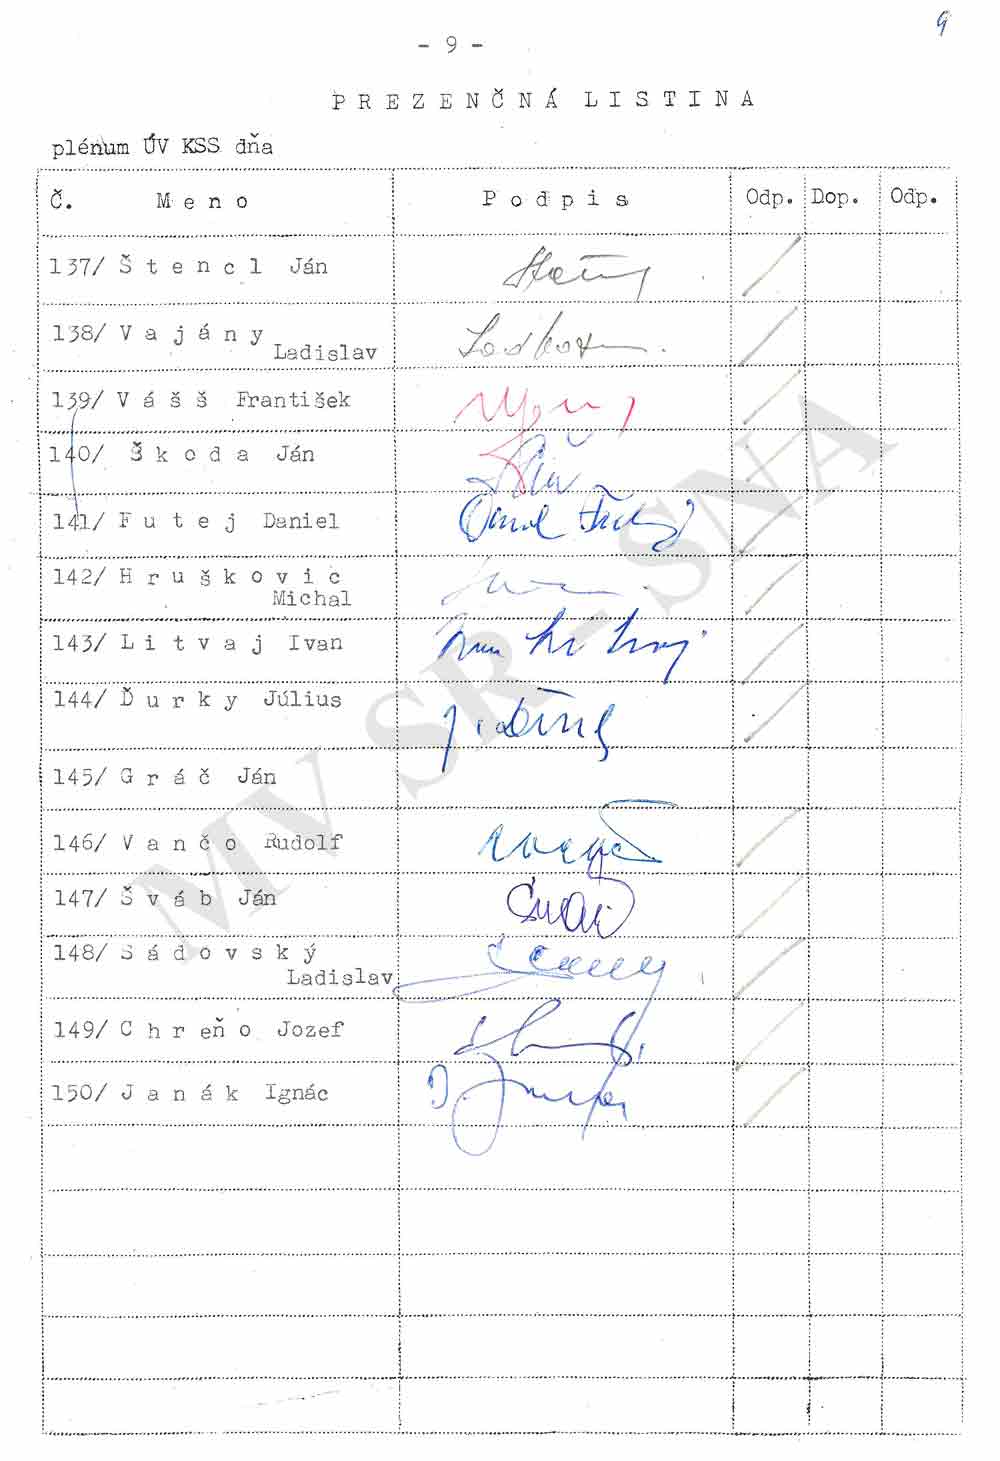 9
- 9 -
P R E Z E N Č N Á L I S T I N A
plénum ÚV KSS dňa
Č. M e n o P o d p i s Odp. Dop. Odp.
137/ Š t e n c l Ján
138/ V a j á n y
Ladislav
139/ V á š š František
140/ Š k o d a Ján
141/ F u t e j Daniel
142/ H r u š k o v i c
Michal
143/ L i t v a j Ivan
144/ Ď u r k y Július
145/ G r á č Ján
146/ V a n č o Rudolf
147/ Š v á b Ján
148/ S á d o v s k ý
Ladislav
149/ C h r e ň o Jozef
150/ J a n á k Ignác
MV SR - SNA